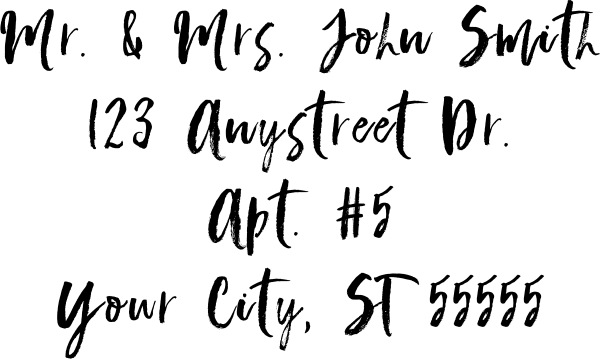 Mr. & Mrs. John Smith
123 Anystreet Dr.
Apt. #5
Your City, ST 55555